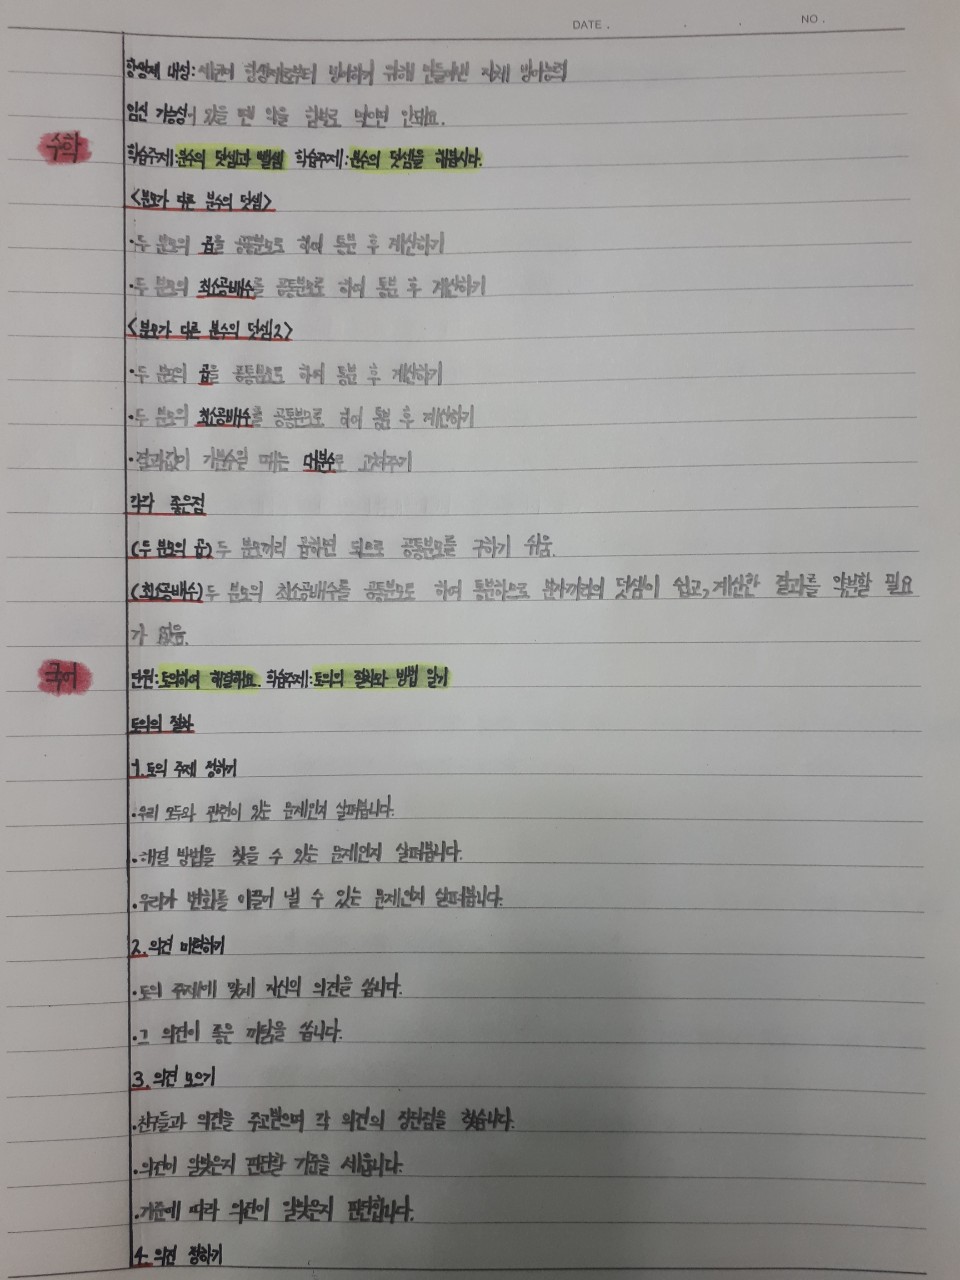 DATE . . . NO .
항생제 내성: 세균이 항생제로부터 방어하기 위해 만들어낸 자체 방어능력
임신 가능성이 있을 땐 약을 함부로 먹으면 안돼요.
수학
학습주제: 분수의 덧셈과 뺄셈 학습주제: 분수의 덧셈을 해봅시다.
<분모가 다른 분수의 덧셈>
·두 분모의 곱을 공통분모로 하여 통분 후 계산하기
·두 분모의 최소공배수를 공통분모로 하여 통분 후 계산하기
<분모가 다른 분수의 덧셈2>
·두 분모의 곱을 공통분모로 하여 통분 후 계산하기
·두 분모의 최소공배수를 공통분모로 하여 통분 후 계산하기
·결과값이 가분수일 때는 대분수로 고쳐주기
각각 좋은점
(두 분모의 곱) 두 분모끼리 곱하면 되므로 공통분모를 구하기 쉬움.
(최소공배수) 두 분모의 최소공배수를 공통분모로 하여 통분하므로 분자끼리의 덧셈이 쉽고, 계산한 결과를 약분할 필요
가 없음.
국어
단원: 토의하여 해결해요. 학습주제: 토의의 절차와 방법 알기
토의의 절차
1. 토의 주제 정하기
·우리 모두와 관련이 있는 문제인지 살펴봅니다.
·해결 방법을 찾을 수 있는 문제인지 살펴봅니다.
·우리가 변화를 이끌어 낼 수 있는 문제인지 살펴봅니다.
2. 의견 마련하기
·토의 주제에 맞게 자신의 의견을 씁니다.
·그 의견이 좋은 까닭을 씁니다.
3. 의견 모으기
·친구들과 의견을 주고받으며 각 의견의 장단점을 찾습니다.
·의견이 알맞은지 판단할 기준을 세웁니다.
·기준에 따라 의견이 알맞은지 판단합니다.
4. 의견 정하기